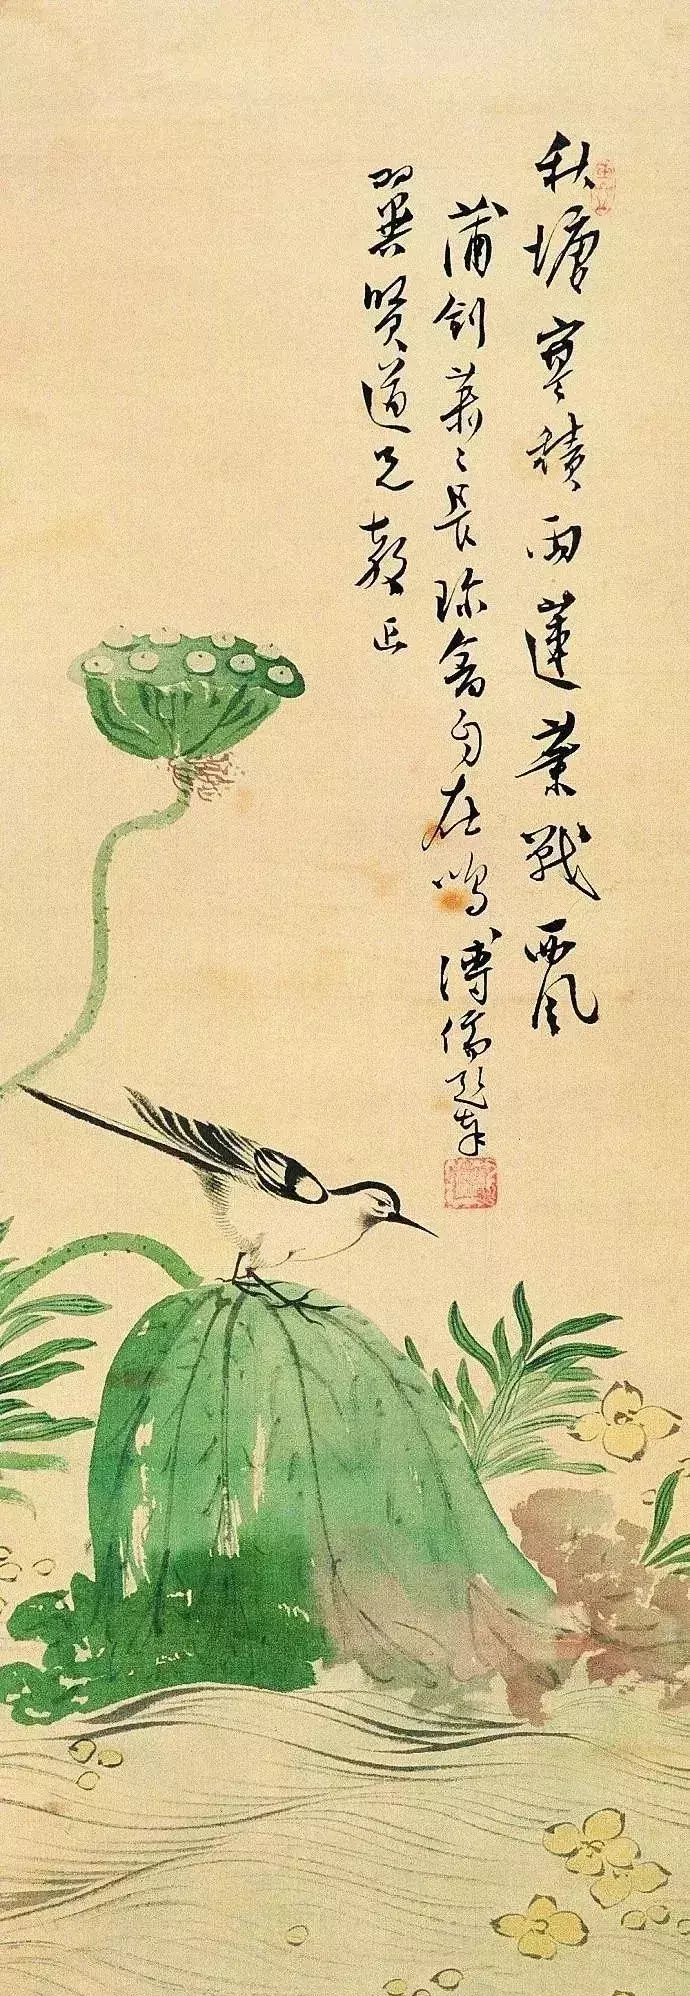 秋塘寒積雨蓮葉戰西風
蒲劍葉〻長珎禽自在鳴溥儒題奉
翼賢道兄教正